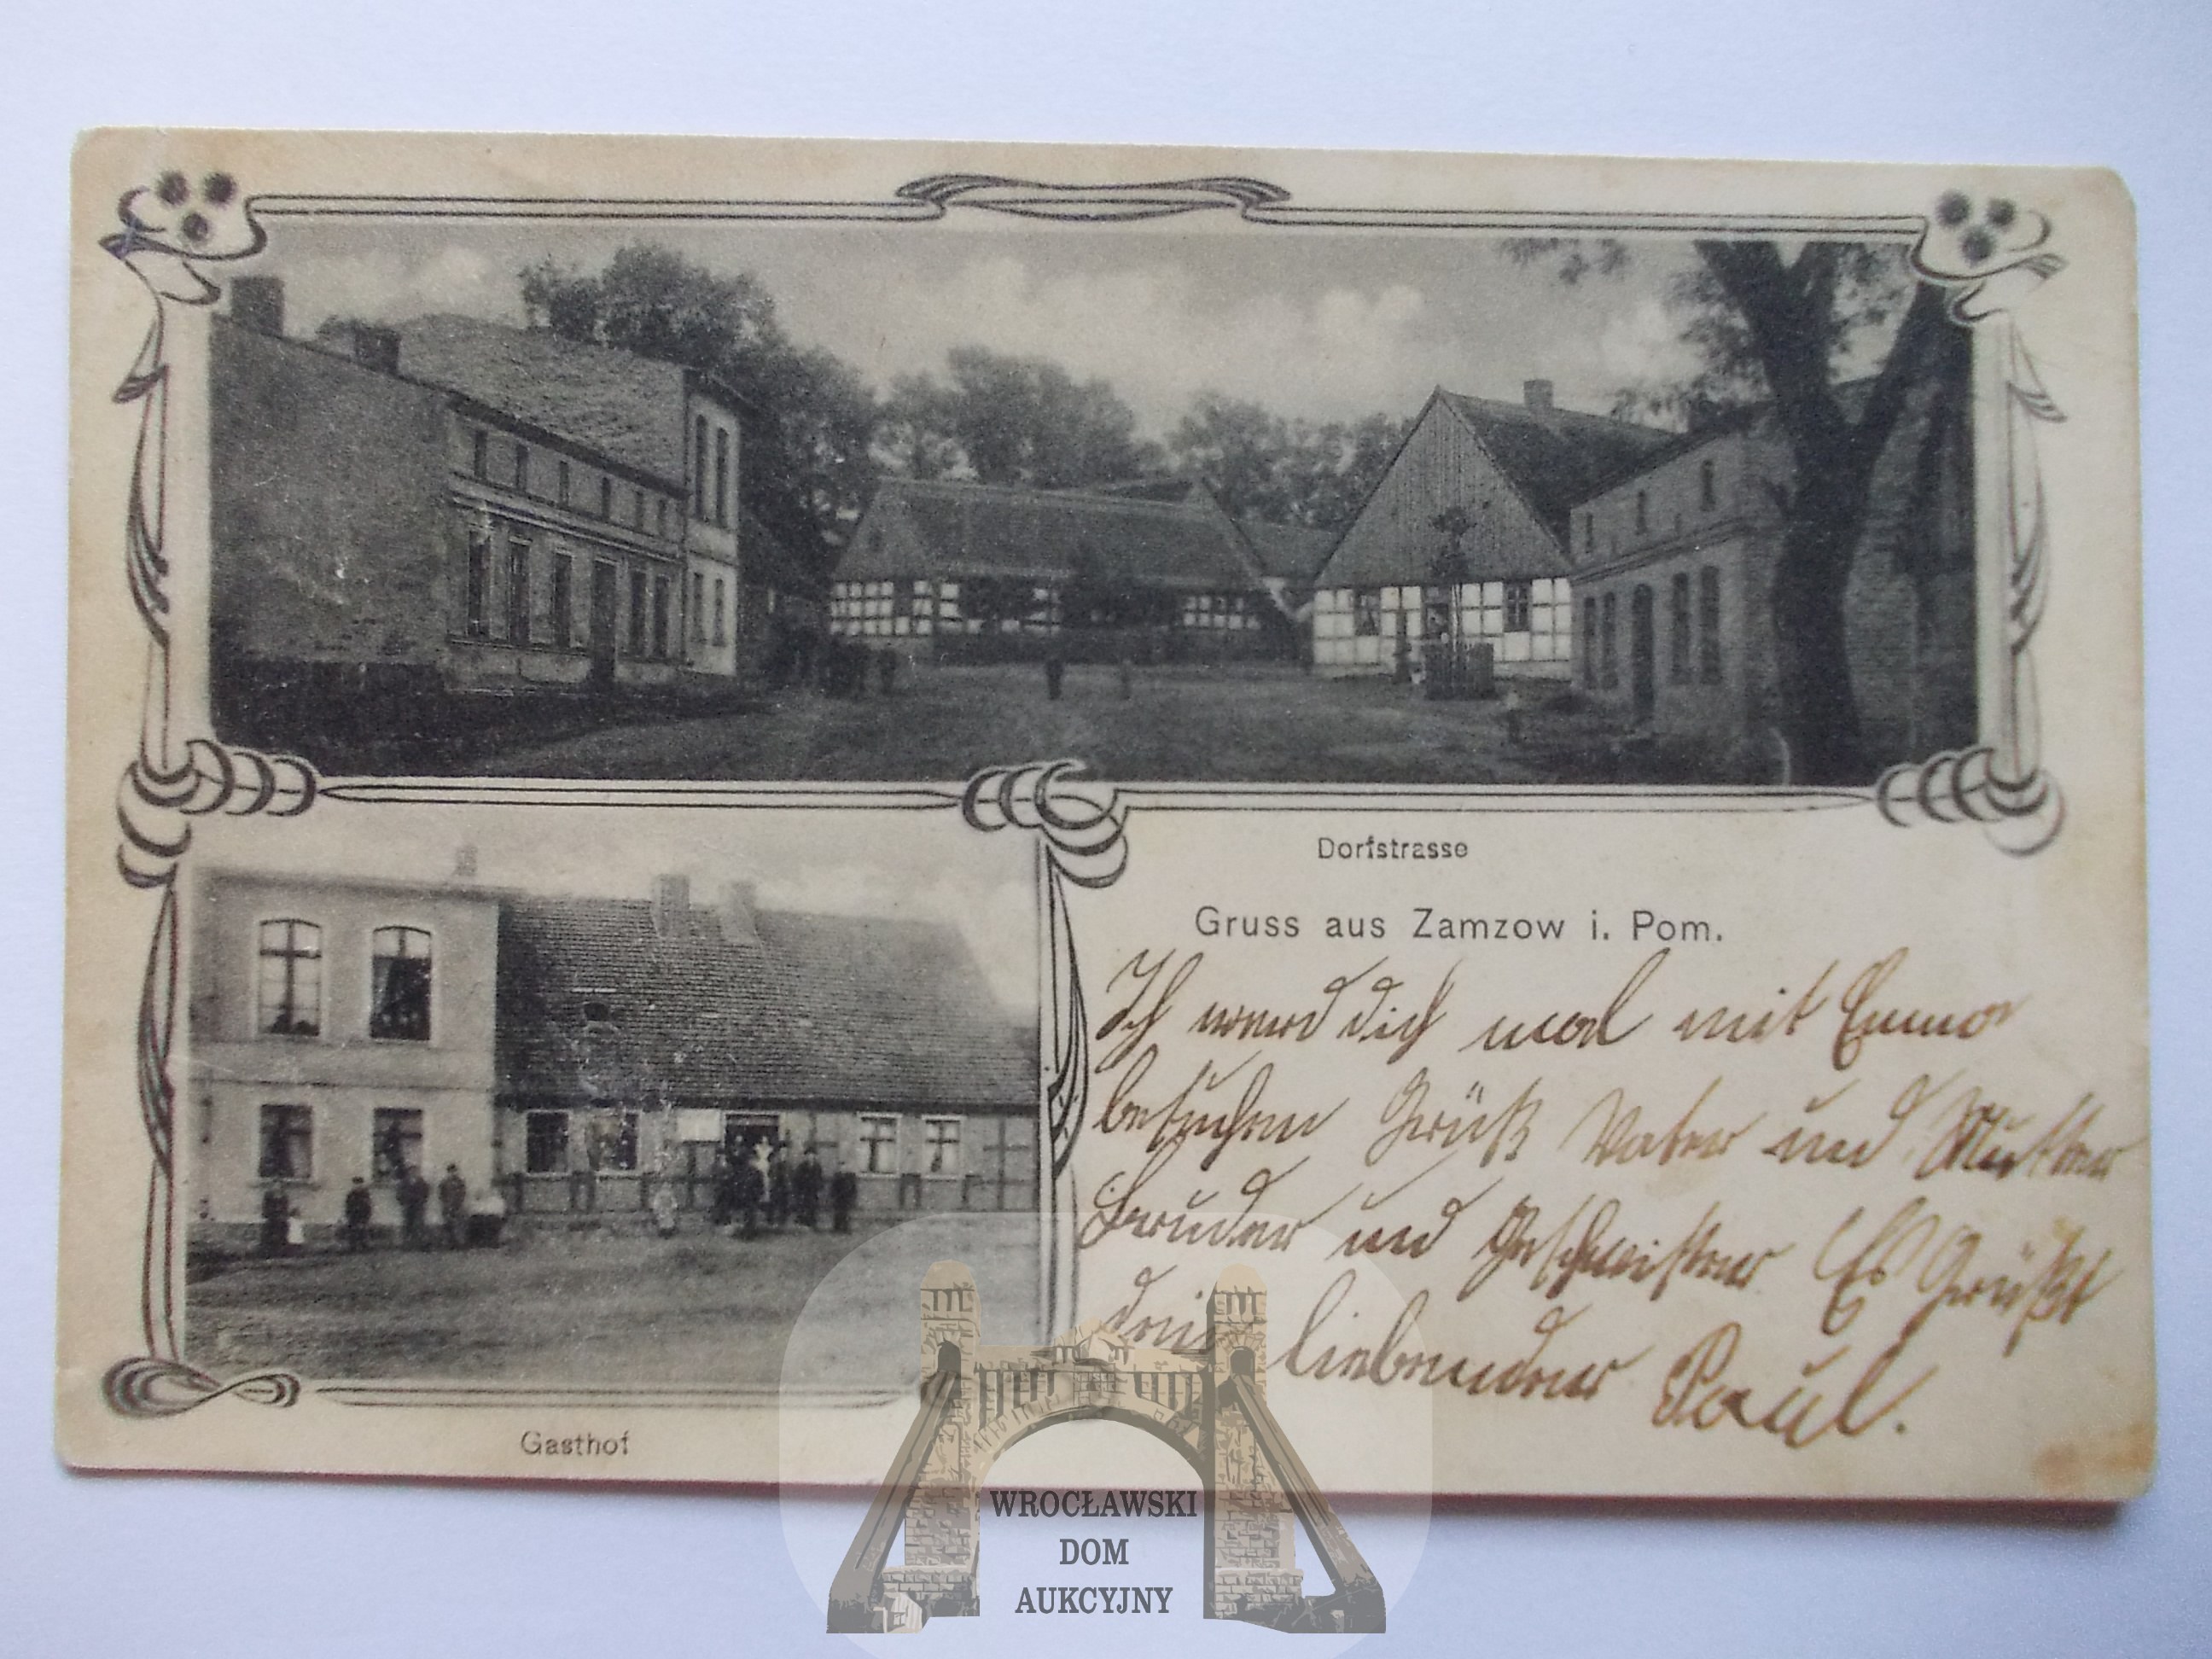 Dorfstrasse
Gruss aus Zamzow i. Pom.
Ich werd dich mal mit Emma
besuchen Grüß Vater und Mutter
Bruder und Geschwister Es Grüßt
dein liebender Paul.
Gasthof
WROCŁAWSKI
DOM
AUKCYJNY